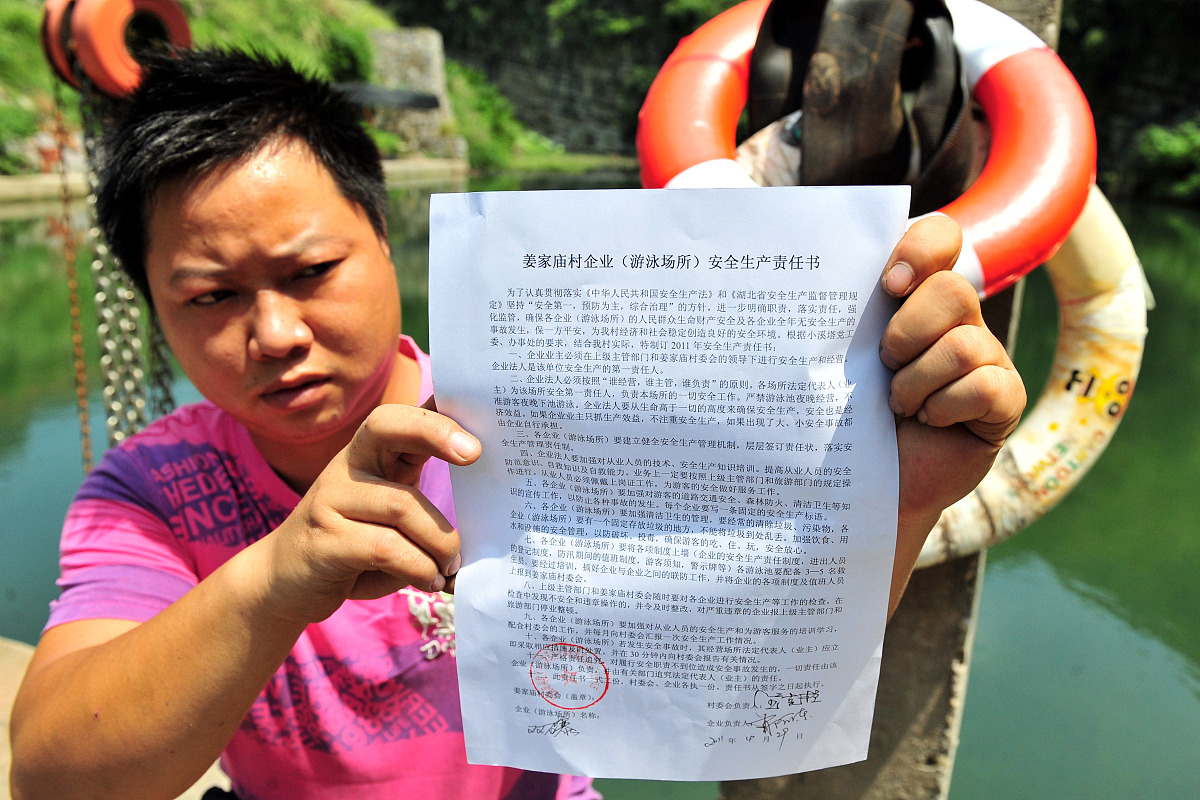 姜家庙村企业（游泳场所）安全生产责任书
为了认真贯彻落实《中华人民共和国安全生产法》和《湖北省安全生产监督管理规
定》坚持“安全第一，预防为主，综合治理”的方针，进一步明确职责，落实责任，强
化监管，确保各企业（游泳场所）的人民群众生命财产安全及各企业全年无安全生产的
事故发生，保一方平安，为我村经济和社会稳定创造良好的安全环境。根据小溪塔党工
委、办事处的要求，结合我村实际，特制订2011年安全生产责任书：
一、企业业主必须在上级主管部门和姜家庙村委会的领导下进行安全生产和经营，
企业法人是该单位安全生产的第一责任人。
二、企业法人必须按照“谁经营，谁主管，谁负责”的原则，各场所法定代表人（业
主）为该场所安全第一责任人，负责本场所的一切安全工作。严禁游泳池夜晚经营，不
准游客夜晚下池游泳。企业法人要从生命高于一切的高度来确保安全生产，安全也是经
济效益。如果企业业主只抓生产效益，不注重安全生产，如果出现了大、小安全事故都
由企业自行承担。
三、各企业（游泳场所）要建立健全安全生产管理机制，层层签订责任状，落实安
全生产管理责任制。
四、企业法人要加强对从业人员的技术、安全生产知识培训。提高从业人员的安全
防范意识、自救知识及自救能力。业务上一定要按照上级主管部门和旅游部门的规定操
作进行，从业人员必须佩戴上岗证工作。为游客的安全做好服务工作。
五、各企业（游泳场所）要加强对游客的道路交通安全、森林防火、清洁卫生等知
识的宣传工作，以防止各种事故的发生。每个企业要写一条固定的安全生产标语。
六、各企业（游泳场所）要加强清洁卫生的管理，要经常的清除垃圾、污染物，各
企业（游泳场所）要有一个固定存放垃圾的地方，不能将垃圾到处乱丢。加强饮食、用
水和设施的安全管理，以防破坏、投毒，确保游客的吃、住、玩，安全放心。
七、各企业（游泳场所）要将各项制度上墙（企业的安全生产责任制度，进出人员
的登记制度，防汛期间的值班制度，游客须知，警示牌等）各游泳池要配备3—5名救
生员，要经过培训，搞好企业与企业之间的联防工作，并将企业的各项制度及值班人员
上报到姜家庙村委会。
八、上级主管部门和姜家庙村委会随时要对各企业进行安全生产等工作的检查，在
检查中发现不安全和违章操作的，并令及时整改，对严重违章的企业报上级主管部门和
旅游部门停业整顿。
九、各企业（游泳场所）要加强对从业人员的安全生产和为游客服务的培训学习，
配合村委会的工作，并每月向村委会汇报一次安全生产工作情况。
十、各企业（游泳场所）若发生安全事故时，其经营场所法定代表人（业主）应立
即采取相应措施及时处置，并在30分钟内向村委会报告有关情况。
十一、严格责任追究，对履行安全职责不到位造成安全事故发生的，一切责任由该
企业（游泳场所）负责，并由有关部门追究法定代表人（业主）的责任。
此责任书一式二份，村委会、企业各执一份，责任书从签字之日起执行。
姜家庙村委会（盖章）：
村委会负责人：
企业（游泳场所）名称：
企业负责人：
2011年 月29日